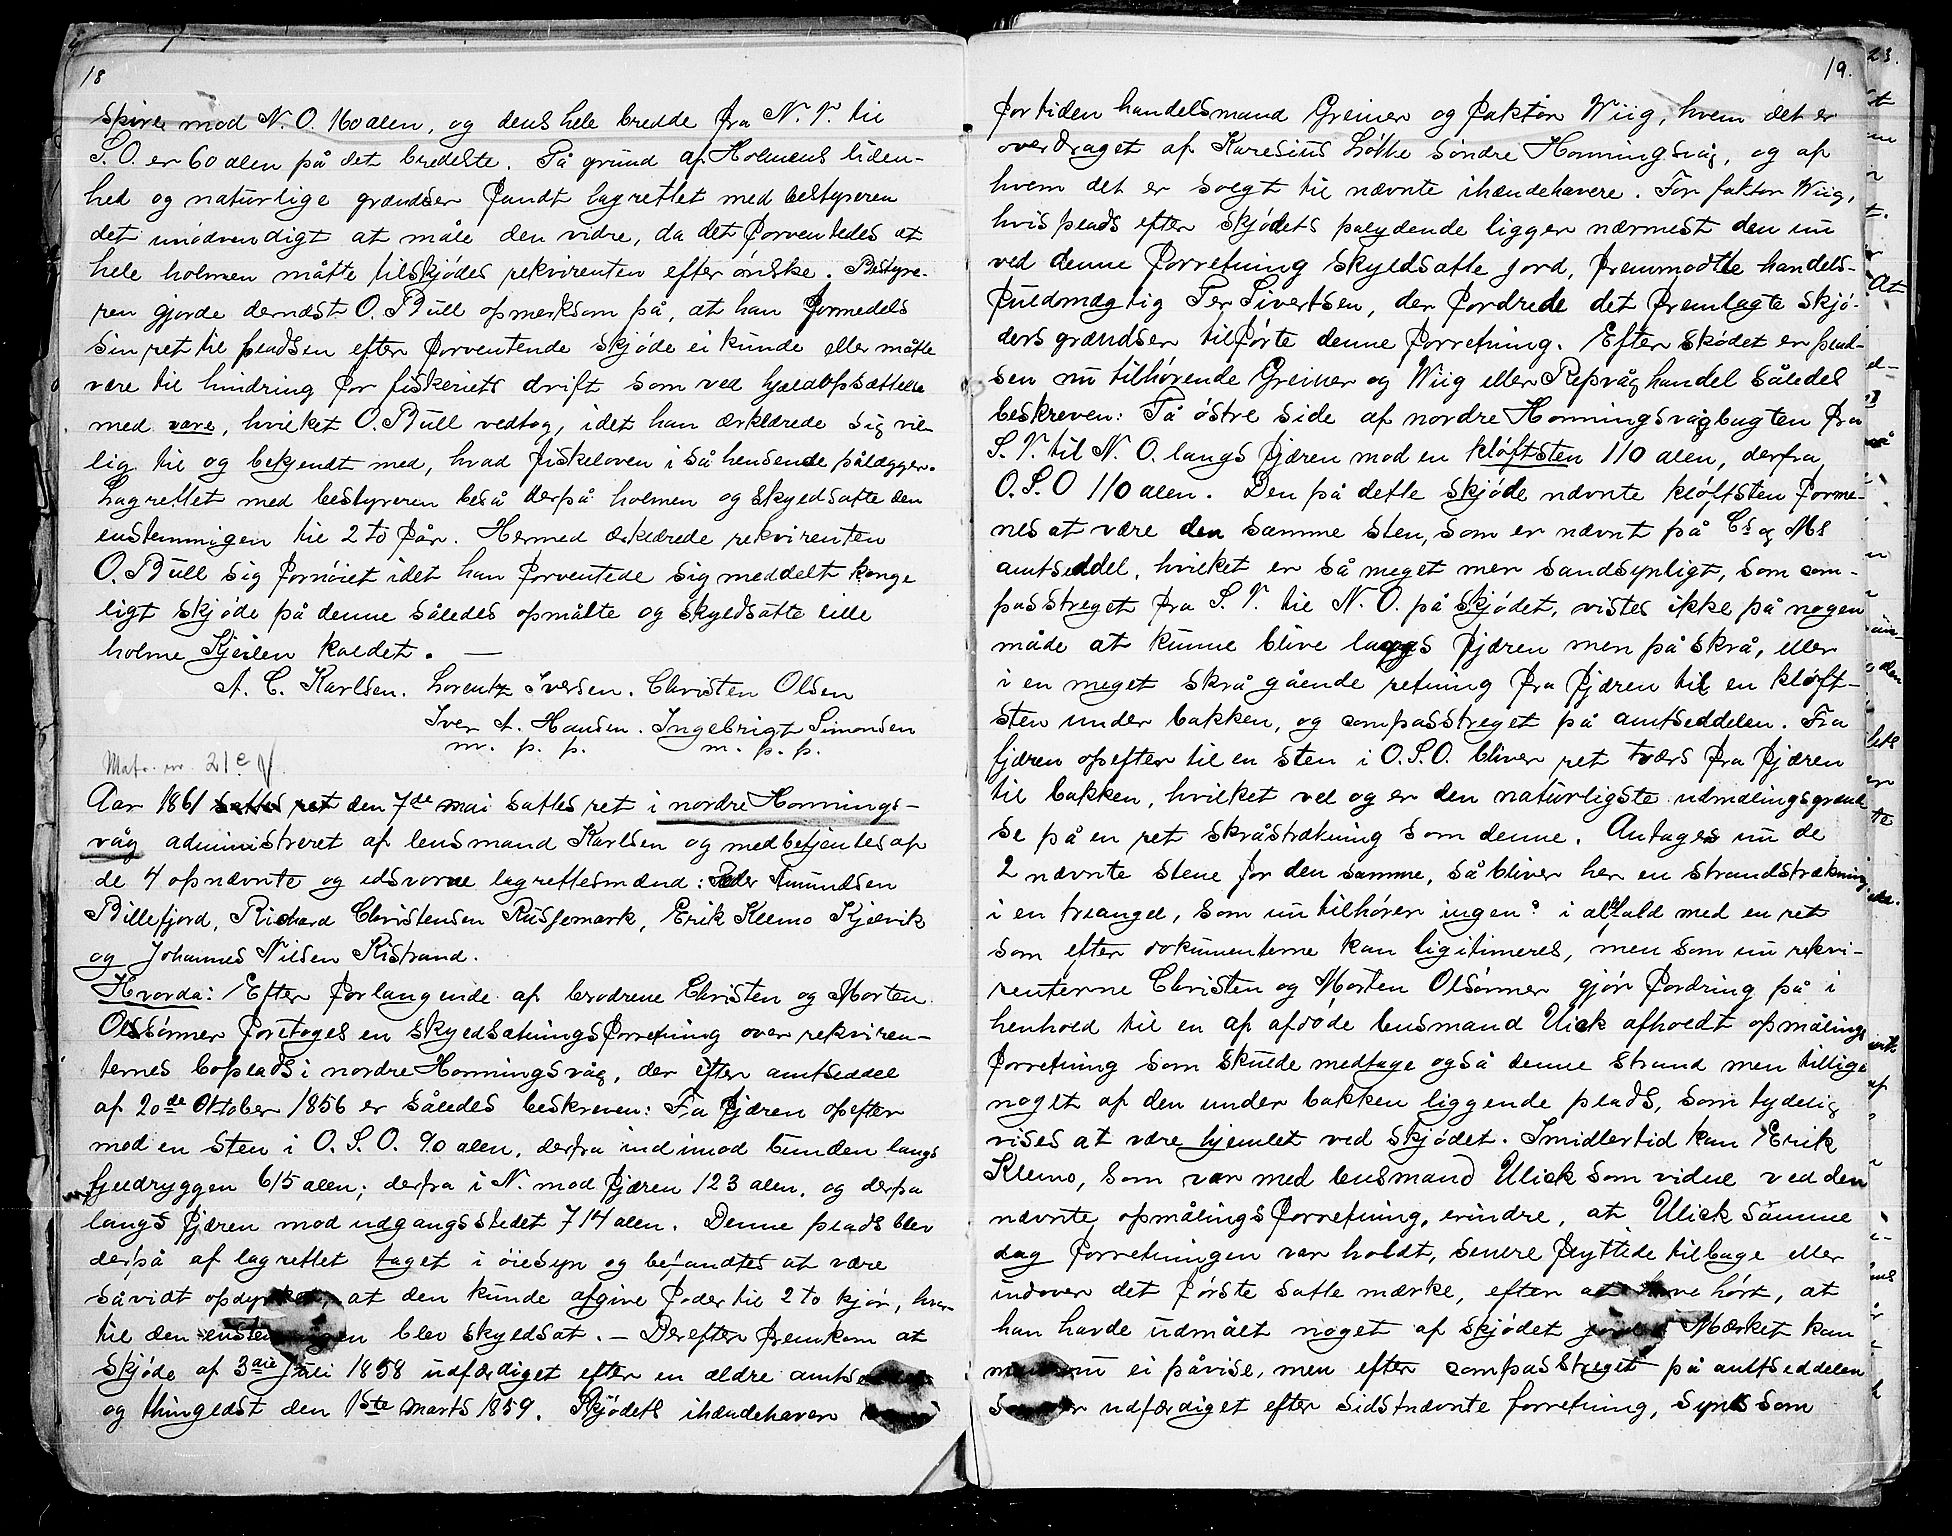 18
spire mod N. O. 160 alen, og dens hele bredde fra N. V. til
S. O. er 60 alen på det bredeste. På grund af Holmens liden-
hed og naturlige grændser fandt lagrettet med bestyreren
det unødvendigt at måle den vidre, da det forventedes at
hele holmen måtte tilskjødes rekvirenten efter ønske. Bestyre-
ren gjorde dernæst O. Bull opmerksom på, at han formedels
sin ret til pladsen efter forventende skjøde ei kunde eller måtte
være til hindring for fiskeriets drift som ved hjeldopsættelse
med være, hvilket O. Bull vedtog, idet han ærklærede sig vil-
lig til og bekjendt med, hvad fiskeloven i så hensende pålægger.
Lagrettet med bestyreren beså derpå holmen og skyldsatte den
enstemmigen til 2 to får. Hermed ærklærede rekvirenten
O. Bull sig fornøiet idet han forventede sig meddelt konge
ligt skjøde på denne således opmålte og skyldsatte lille
holme Kjeilen kaldet. —
A. C. Karlsen. Lorentz Iversen. Christen Olsen
Iver A. Hansen. Ingebrigt Simonsen
m. p. p. m. p. p.
Matr. nr. 21c
Aar 1861 sattes ret den 7de mai sattes ret i nordre Honnings-
våg administreret af lensmand Karlsen og medbetjentes af
de 4 opnævnte og edsvorne lagrettesmænd: Peder Amundsen
Billefjord, Richard Christensen Russemark, Erik Klemo Kjelvik
og Johannes Nilsen Kistrand.
Hvorda: Efter forlangende af brødrene Christen og Morten
Olssønner foretoges en skyldsætningsforretning over rekviren-
ternes boplads i nordre Honningsvåg, der efter amtseddel
af 20de Oktober 1856 er således beskreven: Fra fjæren opefter
mod en sten i O. S. O. 90 alen, derfra ind imod bunden langs
fjeldryggen 615 alen; derfra i N mod fjæren 123 alen, og derfra
langs fjæren mod udgangsstedet 714 alen. Denne plads blev
derpå af lagrettet taget i øiesyn og befandtes at være
såvidt opdyrket, at den kunde afgive foder til 2 to kjør, hvor
til den blev skyldsat. — Derefter fremkom at
skjøde af 3die Juli 1858 udfærdiget efter en ældre
og thinglæst den 1ste Marts 1859. Skjødets ihændehaver
19.
for tiden handelsmand Greiner og faktor Wiig, hvem det er
overdraget af Karesius Løkke søndre Honningsvåg, og af
hvem det er solgt til nævnte ihændehavere. For faktor Wiig,
hvis plads efter skjødets pålydende ligger nærmest den nu
ved denne forretning skyldsatte jord, fremmødte handels-
fuldmægtig Per Sivertsen, der fordrede det fremlagte skjø-
ders grændser tilførte denne forretning. Efter skødet er plad-
sen nu tilhørende Greiner og Wiig eller Repvåg handel således
beskreven: På østre side af nordre Honningsvågbugten fra
S. V. til N. O. langs fjæren mod en kløftsten 110 alen, derfra
O. S. O 110 alen. Den på dette skjøde nævnte kløftsten forme-
nes at være den samme sten, som er nævnt på Cs og Ms
amtseddel, hvilket er så meget mer sandsynligt, som com-
passtreget fra S. V. til N. O. på skjødet, vistes ikke på nogen
måde at kunne blive langs fjæren men på skrå, eller
i en meget skrå gående retning fra fjæren til en kløft-
sten under bakken, og compasstreget på amtseddelen. Fra
fjæren opefter til en sten i O. S. O. bliver ret tværs fra fjæren
til bakken, hvilket vel og er den naturligste udmålingsgrænd
se på en ret skråstrækning som denne. Antages nu de
2 nævnte stene for den samme, så bliver her en strandstrækning
i en treangel, som nu tilhører ingen? i alfald med en ret
som efter dokumenterne kan ligitimeres, men som nu rekvi-
renterne Christen og Morten Olsønner gjør fordring på i
henhold til en af afdøde lensmand Ulick afholdt opmålings
forretning som skulde medtage også denne strand men tillige
noget af den under bakken liggende plads, som tydelig
vises at være hjemlet ved skjødet. Imidlertid kan Erik
Klemo, som var med lensmand Ulick som vidne ved den
nævnte opmålingsforretning, erindre, at Ulick samme
dag forretningen var holdt, senere flyttede tilbage eller
indover det første satte mærke, efter at hørt, at
han havde udmålt noget af skjødet Mærket kan
nu ei påvise, men efter compasstreget på amtseddelen
udfærdiget efter sidstnævnte forretning, synes som